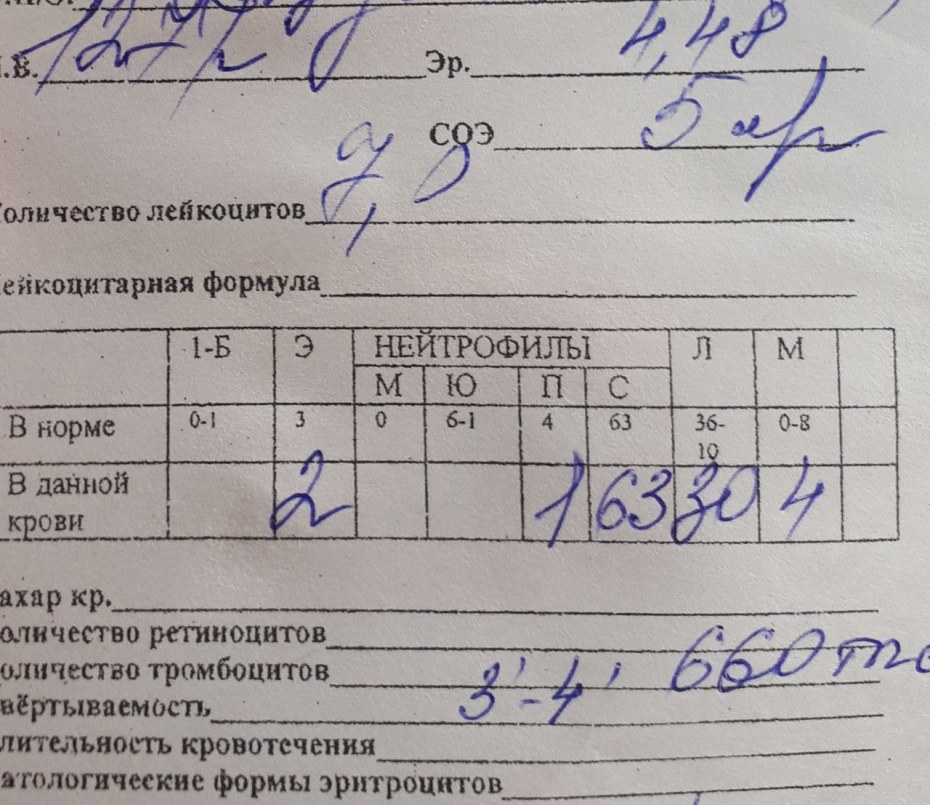 .в. 127 г/ Эр. 4,48
СОЭ 5 мм
Количество лейкоцитов 7,0
ейкоцитарная формула
1-Б Э НЕЙТРОФИЛЫ Л М
М Ю П С
В норме 0-1 3 0 6-1 4 63 36- 0-8
10
В данной 2 1 63 30 4
крови
ахар кр.
оличество ретиноцитов
оличество тромбоцитов 660 т
вёртываемость 3'-4'
лительность кровотечения
атологические формы эритроцитов